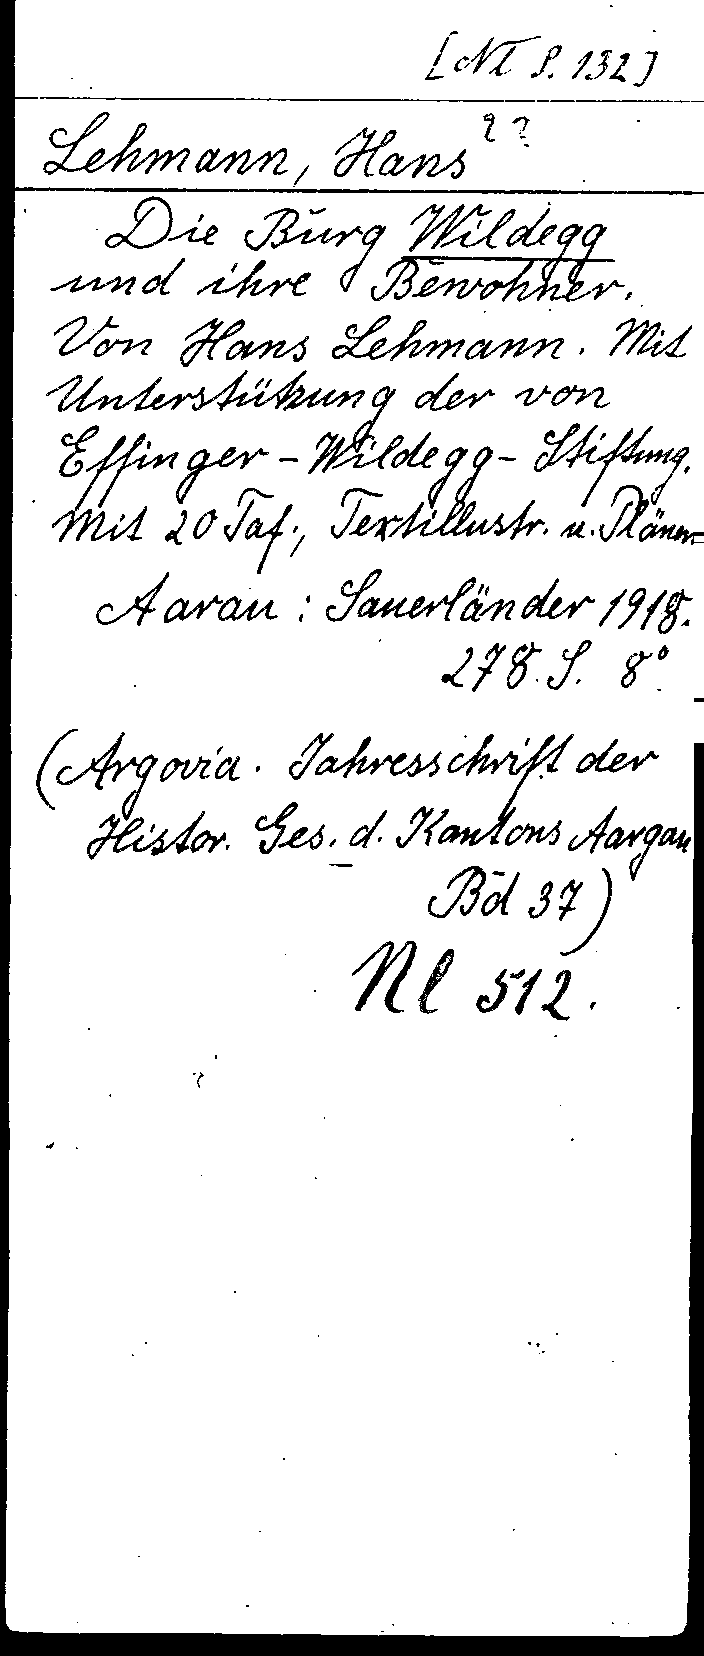 [Nl S. 132]
Lehmann, Hans ??
Die Burg Wildegg
und ihre Bewohner.
Von Hans Lehmann. Mit
Unterstützung der von
Effinger-Wildegg-Stiftung.
Mit 20 Taf., Textillustr. u. Plänen
Aarau: Sauerländer 1918.
278 S. 8°
(Argovia. Jahresschrift der
Histor. Ges. d. Kantons Aargau
Bd 37)
Nl 512.